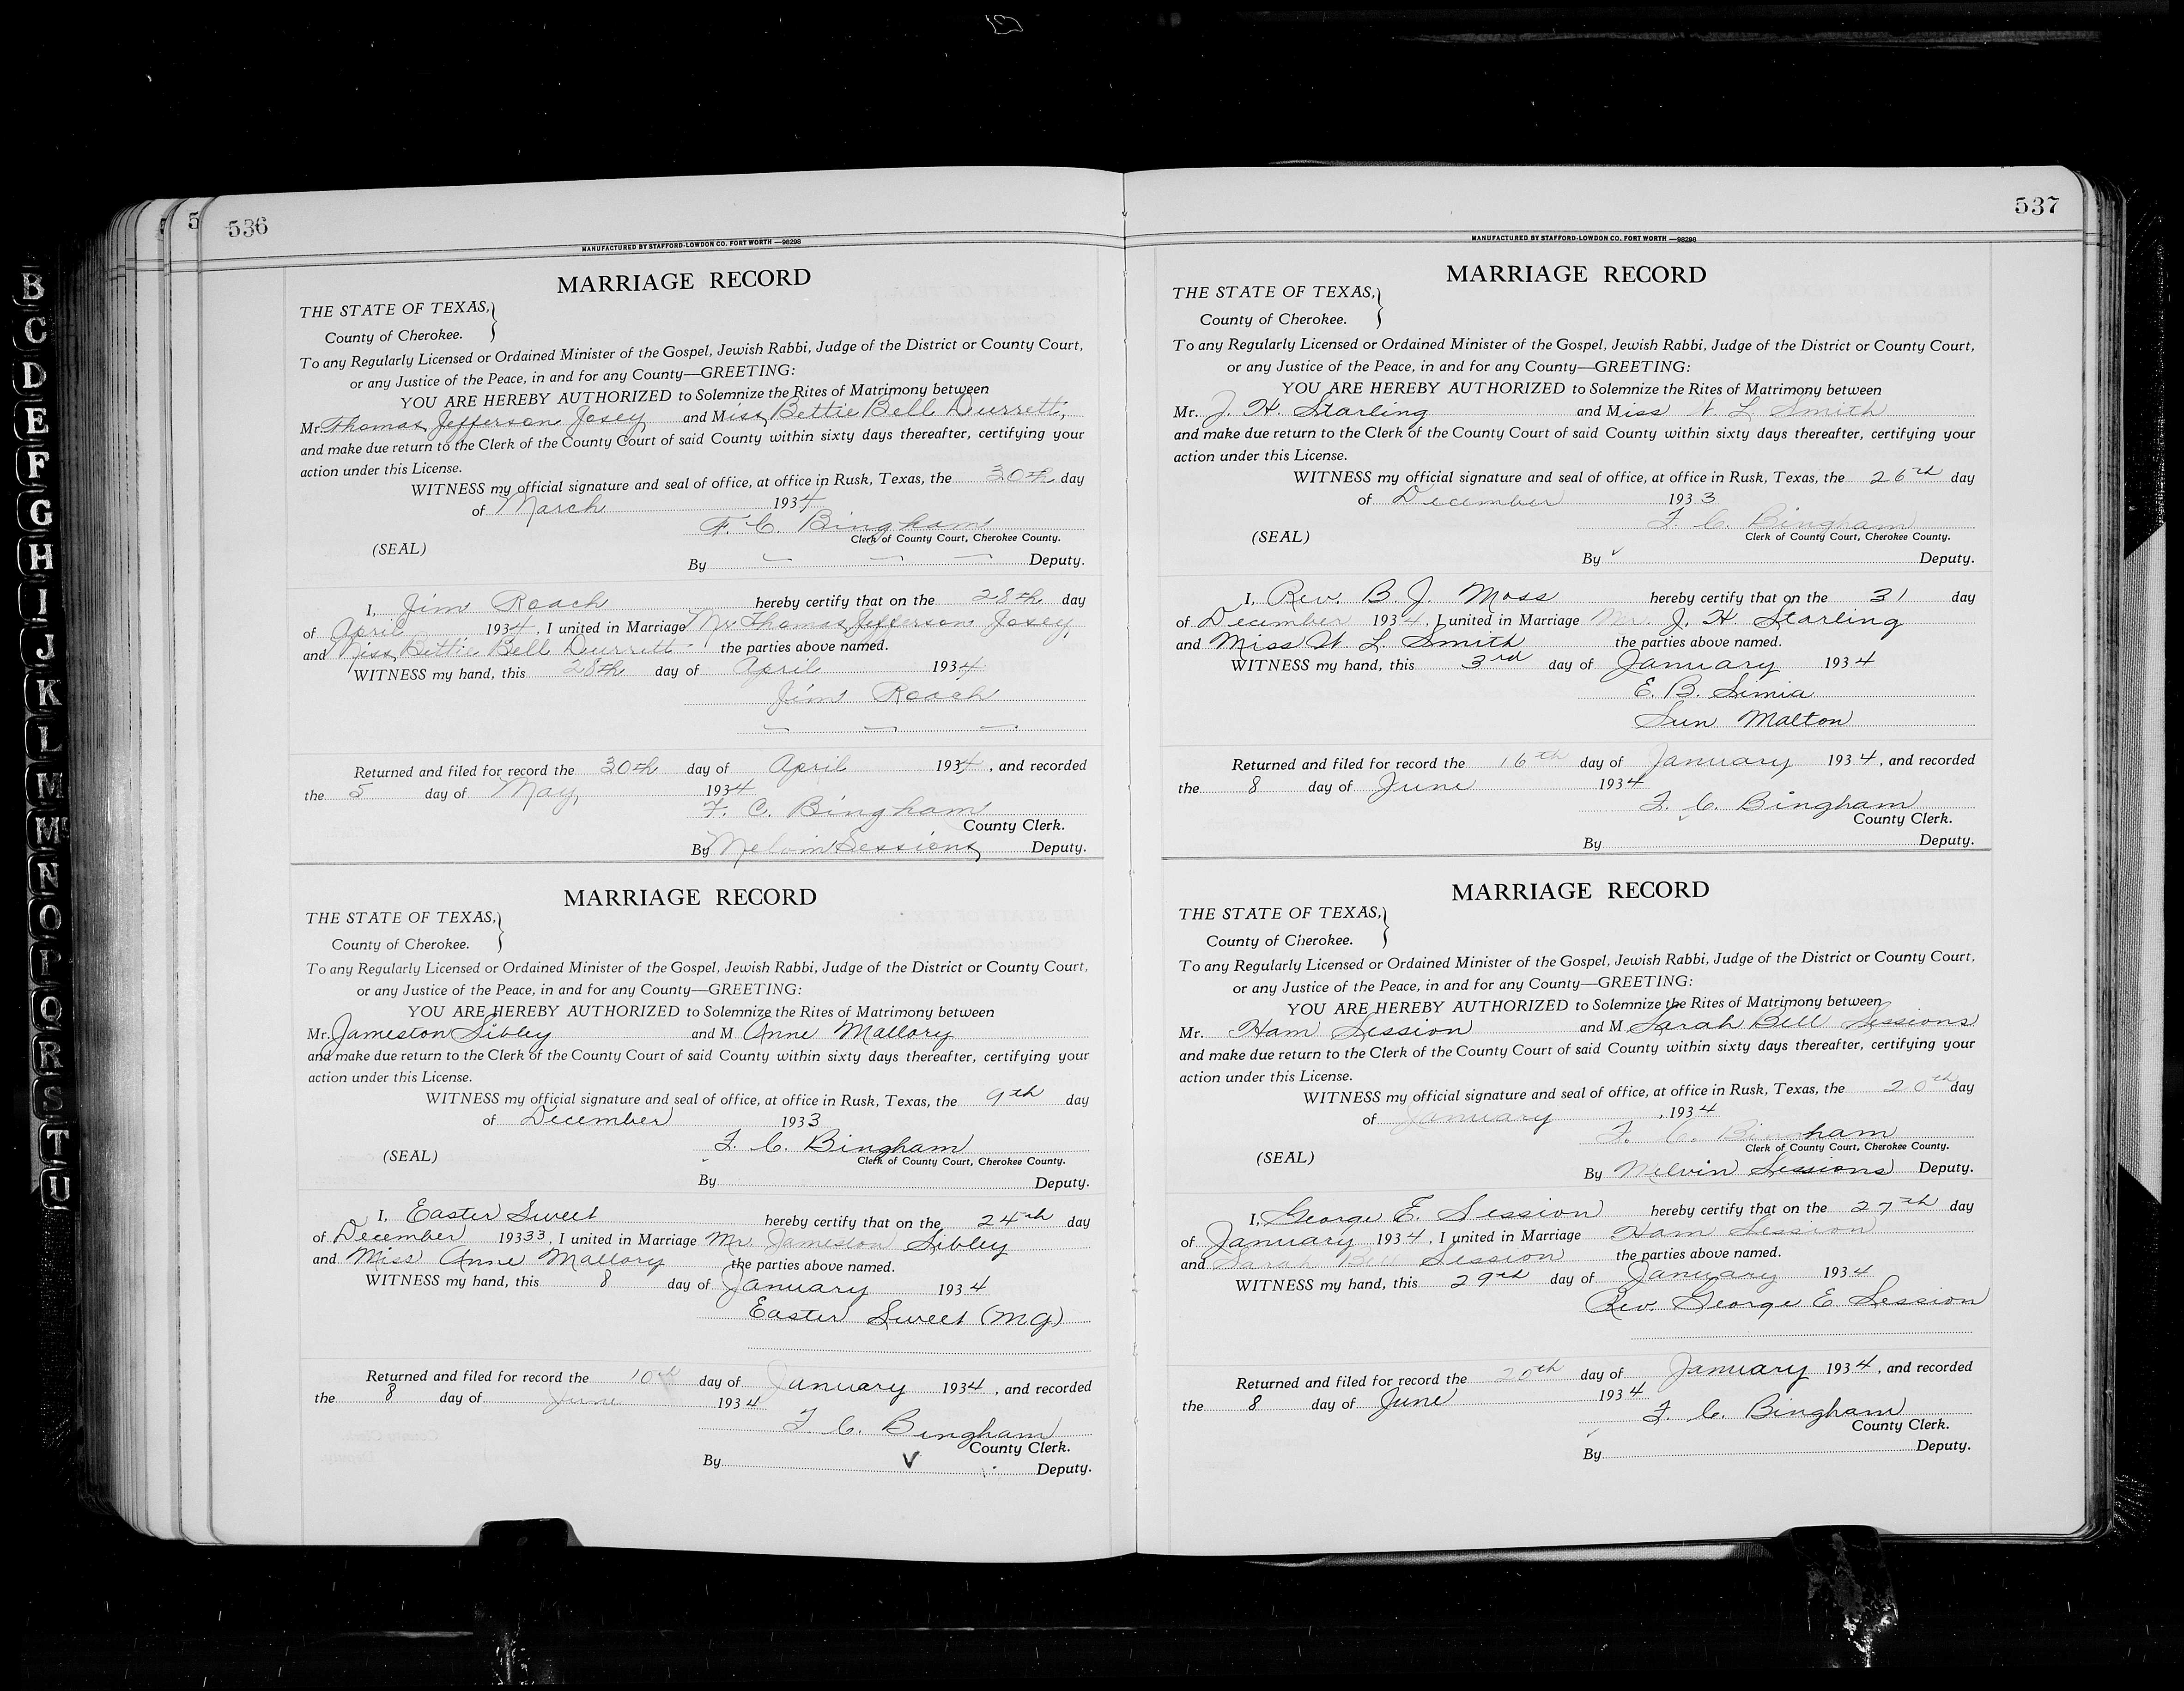 B
C
D
E
F
G
H
I
J
K
L
M
Mc
N
O
P
Q
R
S
T
U
5
536
MANUFACTURED BY STAFFORD-LOWDON CO. FORT WORTH —98298
MARRIAGE RECORD
THE STATE OF TEXAS,
County of Cherokee.
To any Regularly Licensed or Ordained Minister of the Gospel, Jewish Rabbi, Judge of the District or County Court,
or any Justice of the Peace, in and for any County—GREETING:
YOU ARE HEREBY AUTHORIZED to Solemnize the Rites of Matrimony between
Mr. Thomas Jefferson Josey and Miss Bettie Bell Durrett,
and make due return to the Clerk of the County Court of said County within sixty days thereafter, certifying your
action under this License.
WITNESS my official signature and seal of office, at office in Rusk, Texas, the 30th day
of March 1934
F. C. Bingham
Clerk of County Court, Cherokee County.
(SEAL)
By — — — Deputy.
I, Jim Roach hereby certify that on the 28th day
of April 1934, I united in Marriage Mr. Thomas Jefferson Josey,
and Miss Bettie Bell Durrett - the parties above named.
WITNESS my hand, this 28th day of April 1934
Jim Roach
— — —
Returned and filed for record the 30th day of April 1934, and recorded
the 5 day of May, 1934
F. C. Bingham
County Clerk.
By Melvin Sessions Deputy.
MARRIAGE RECORD
THE STATE OF TEXAS,
County of Cherokee.
To any Regularly Licensed or Ordained Minister of the Gospel, Jewish Rabbi, Judge of the District or County Court,
or any Justice of the Peace, in and for any County—GREETING:
YOU ARE HEREBY AUTHORIZED to Solemnize the Rites of Matrimony between
Mr. Jameston Sibley and M Anne Mallory
and make due return to the Clerk of the County Court of said County within sixty days thereafter, certifying your
action under this License.
WITNESS my official signature and seal of office, at office in Rusk, Texas, the 9th day
of December 1933
F. C. Bingham
Clerk of County Court, Cherokee County.
(SEAL)
By Deputy.
I, Easter Sweet hereby certify that on the 24th day
of December 19333, I united in Marriage Mr. Jameston Sibley
and Miss Anne Mallory the parties above named.
WITNESS my hand, this 8 day of January 1934
Easter Sweet (MG)
Returned and filed for record the 10th day of January 1934, and recorded
the 8 day of June 1934
F. C. Bingham
County Clerk.
By Deputy.
537
MANUFACTURED BY STAFFORD-LOWDON CO. FORT WORTH —98298
MARRIAGE RECORD
THE STATE OF TEXAS,
County of Cherokee.
To any Regularly Licensed or Ordained Minister of the Gospel, Jewish Rabbi, Judge of the District or County Court,
or any Justice of the Peace, in and for any County—GREETING:
YOU ARE HEREBY AUTHORIZED to Solemnize the Rites of Matrimony between
Mr. J. H. Starling and Miss L. Smith
and make due return to the Clerk of the County Court of said County within sixty days thereafter, certifying your
action under this License.
WITNESS my official signature and seal of office, at office in Rusk, Texas, the 26th day
of December 1933
F. C. Bingham
Clerk of County Court, Cherokee County.
(SEAL)
By Deputy.
I, Rev. B. J. Moss hereby certify that on the 31 day
of December 1934, I united in Marriage Mr. J. H. Starling
and Miss L. Smith the parties above named.
WITNESS my hand, this 3rd day of January 1934
E. B. Simia
Sun Malton
Returned and filed for record the 16th day of January 1934, and recorded
the 8 day of June 1934
F. C. Bingham
County Clerk.
By Deputy.
MARRIAGE RECORD
THE STATE OF TEXAS,
County of Cherokee.
To any Regularly Licensed or Ordained Minister of the Gospel, Jewish Rabbi, Judge of the District or County Court,
or any Justice of the Peace, in and for any County—GREETING:
YOU ARE HEREBY AUTHORIZED to Solemnize the Rites of Matrimony between
Mr. Ham Session and M Sarah Bell Sessions
and make due return to the Clerk of the County Court of said County within sixty days thereafter, certifying your
action under this License.
WITNESS my official signature and seal of office, at office in Rusk, Texas, the 20th day
of January, 1934
F. C. Bingham
Clerk of County Court, Cherokee County.
(SEAL)
By Melvin Sessions Deputy.
I, George E. Session hereby certify that on the 27th day
of January 1934, I united in Marriage Ham Session
and Sarah Bell Session the parties above named.
WITNESS my hand, this 29th day of January 1934
Rev. George E Session
Returned and filed for record the 20th day of January 1934, and recorded
the 8 day of June 1934
F. C. Bingham
County Clerk.
By Deputy.